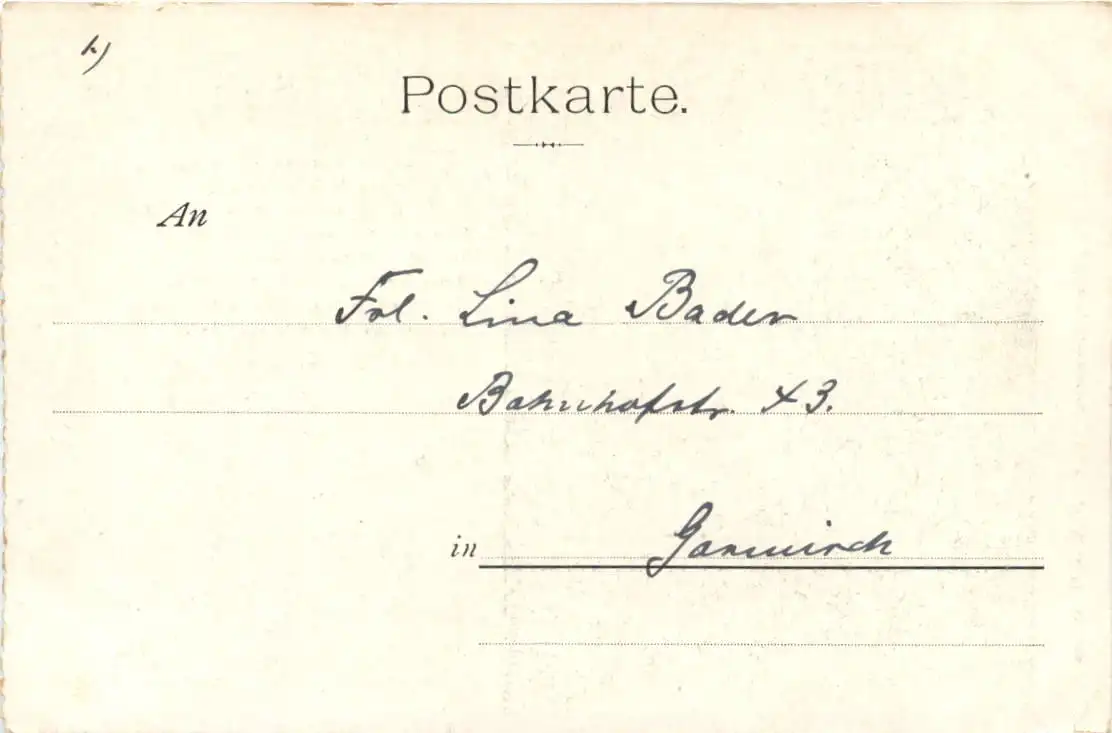 Postkarte.
An
Frl. Lina Bader
Bahnhofstr. 43.
in Garmisch